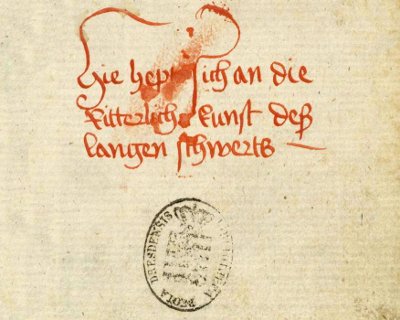 Hie hept sich an die
Ritterliche kunst deß
langen schwerts
DRESDENSIS